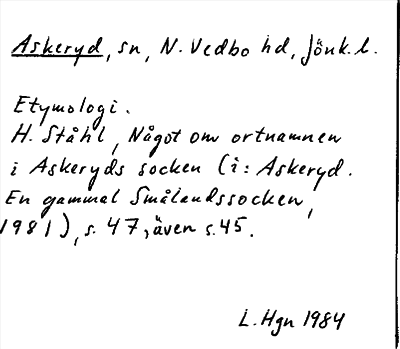 Askeryd, sn, N. Vedbo hd, Jönk. l.
Etymologi.
H. Ståhl, Något om ortnamnen
i Askeryds socken (i: Askeryd.
En gammal Smålandssocken,
1981), s. 47, även s. 45.
L. Hgn 1984